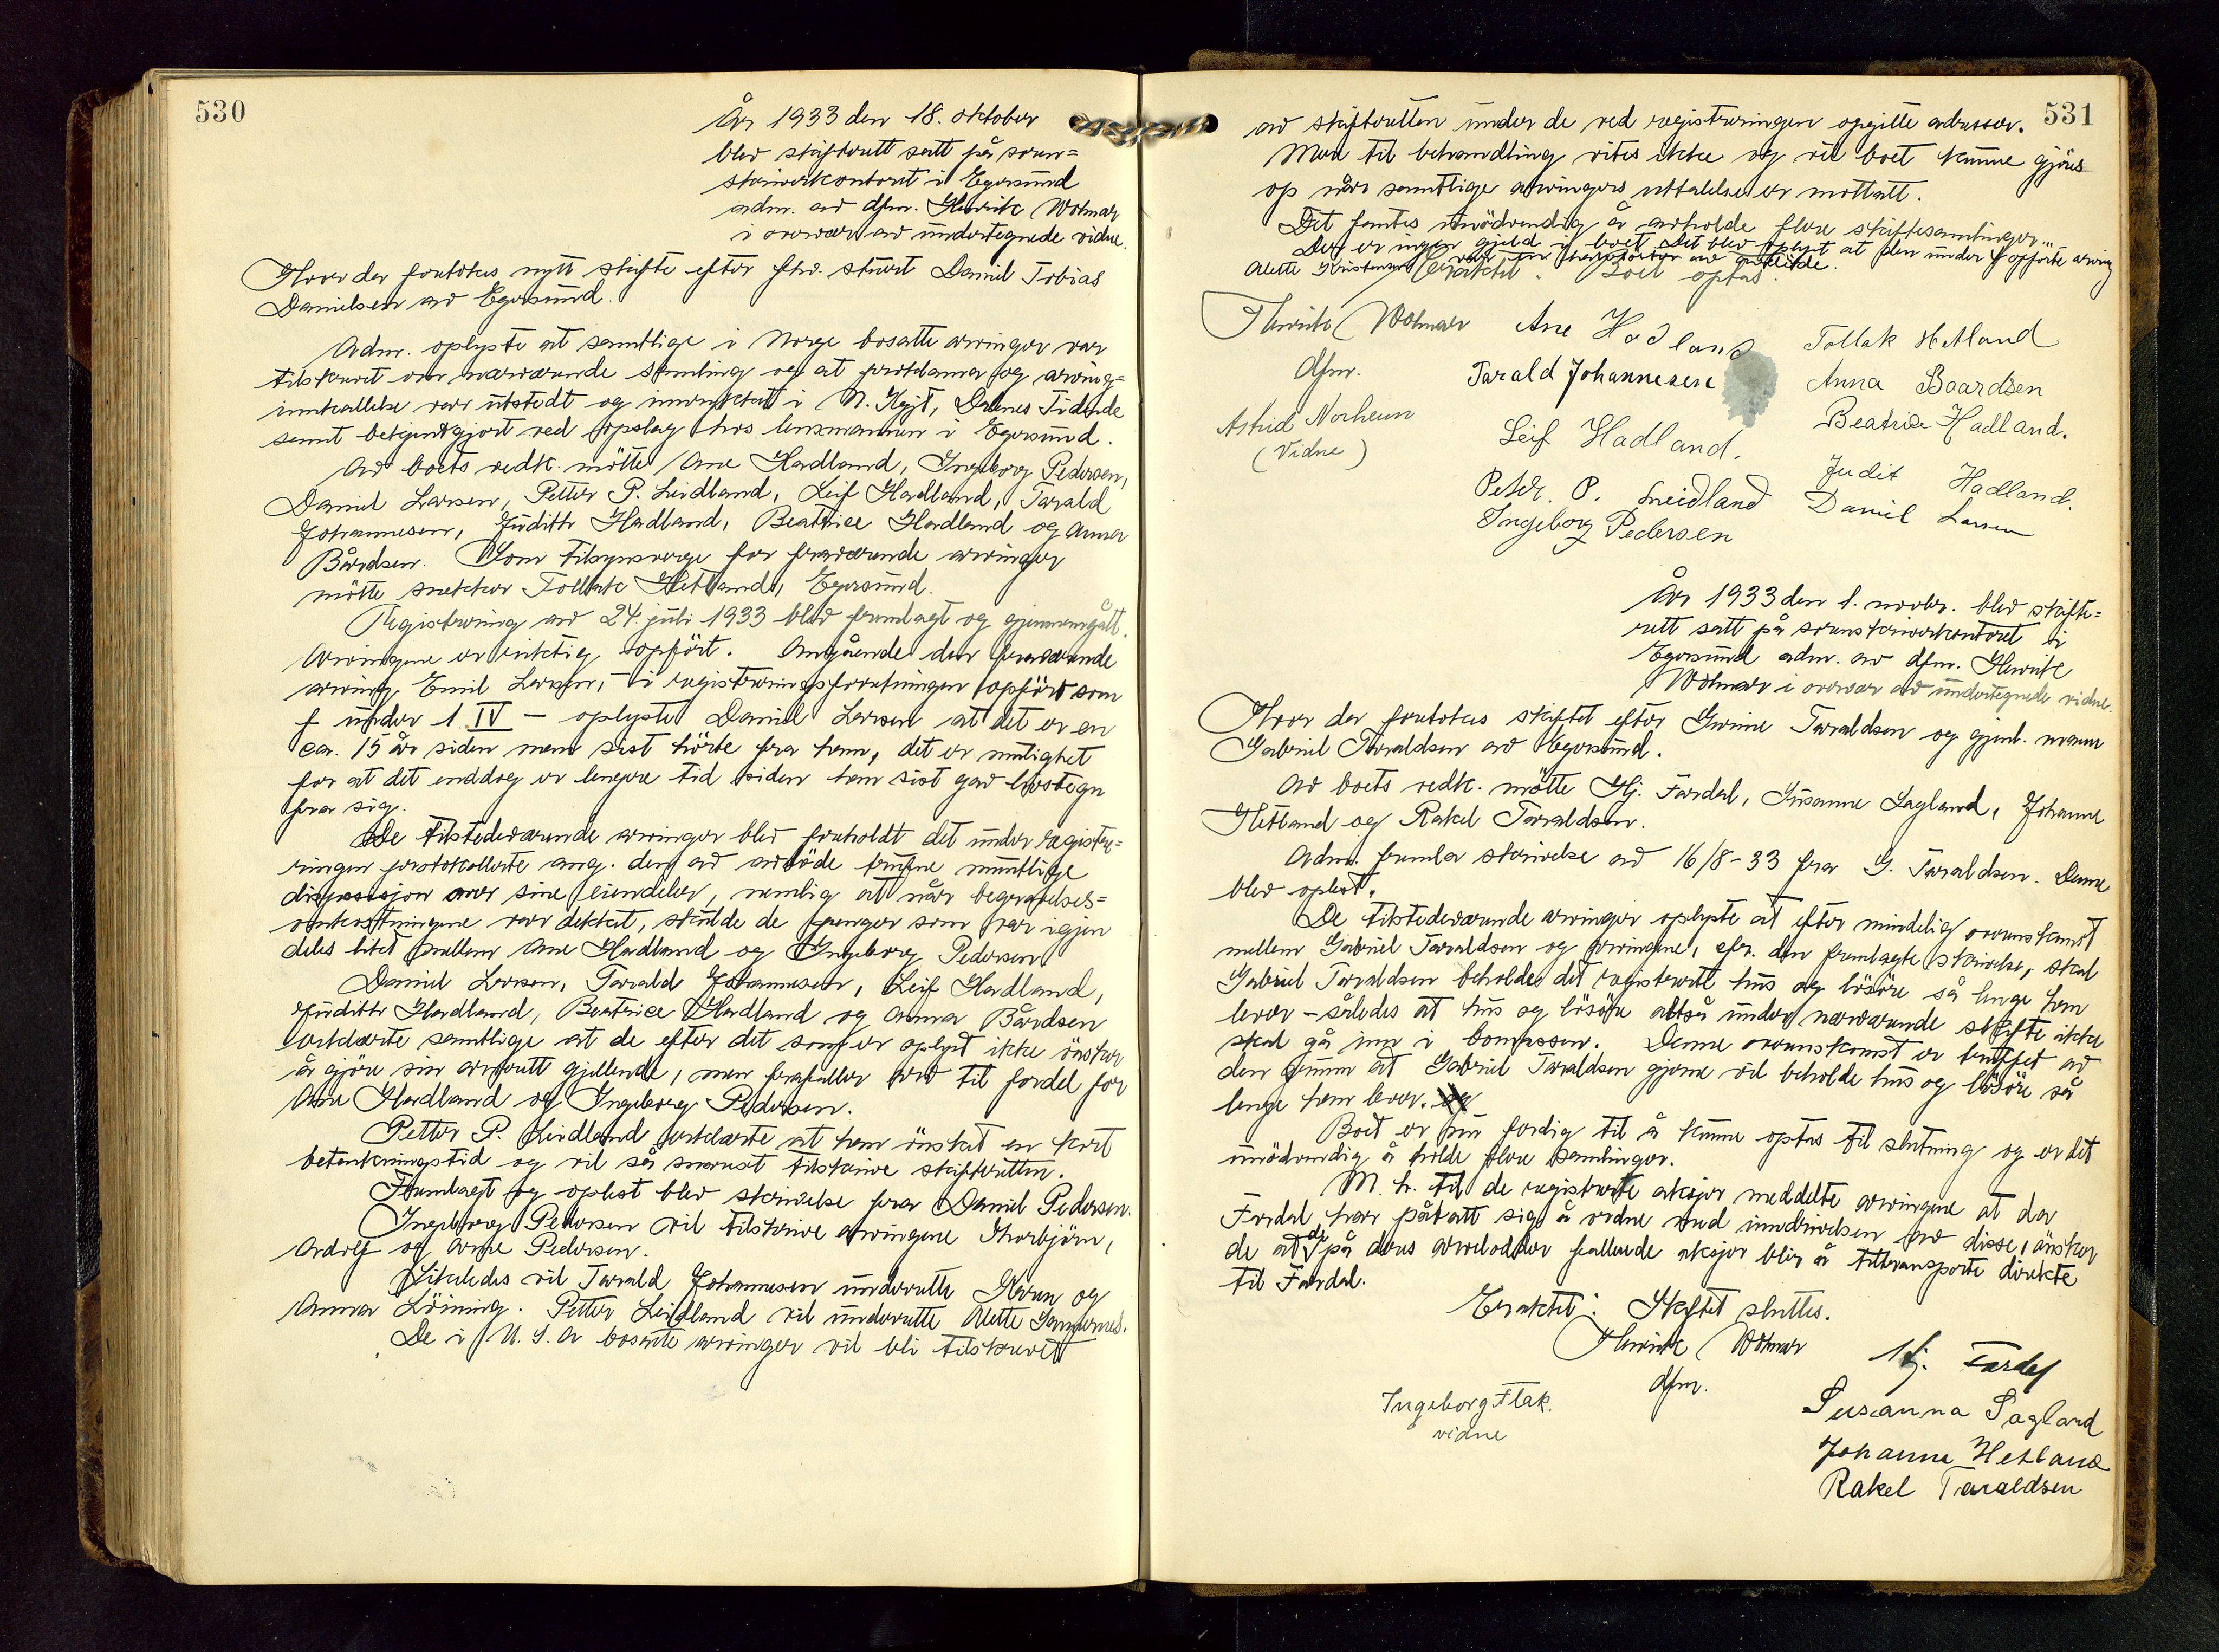 530
År 1933 den 18. oktober
blev skifterett satt på soren=
skriverkontoret i Egersund
adm. av dfm. Henrik Wolmar
i overvær av undertegnede vidne.
Hvor der foretokes nytt skifte efter fhv. stuert Daniel Tobias
Danielsen av Egersund.
Adm. oplyste at samtlige i Norge bosatte arvinger var
tilskrevet om nærværende samling og at proklama og arving=
innkallelse var utstedt og inntatt i N. Kgjt, Dalenes Tidende
samt bekjentgjort ved opslag hos lensmannen i Egersund.
Av boets vedk. møtte Ane Hadland, Ingeborg Pedersen,
Daniel Larsen, Petter P. Leidland, Leif Hadland, Tarald
Johannesen, Judith Hadland, Beatrice Hadland og Anna
Bårdsen. Som tilsynsverge for fraværende arvinger
møtte snekker Tollak Hetland, Egersund.
Registrering av 24. juli 1933 blev fremlagt og gjennemgått.
Arvingene er riktig opført. Angående den fraværende
arving Emil Larsen, i registreringsforretningen opført som
f under 1 IV – oplyste Daniel Larsen at det er en
ca. 15 år siden man sist hørte fra ham, det er mulighet
for at det enddog er lengere tid siden han sist gav livstegn
fra sig.
De tilstedeværende arvinger blev foreholdt det under registre=
ringen protokollerte ang. den av avdøde trufne muntlige
disposisjon over sine eiendeler, nemlig at når begravelses=
omkostningene var dekket, skulde de penger som var igjen
deles likt mellem Ane Hadland og Ingeborg Pedersen
Daniel Larsen, Tarald Johannesen, Leif Hadland,
Judith Hadland, Beatrice Hadland og Anna Bårdsen
erklærte samtlige at de efter det som er oplyst ikke ønsker
å gjøre sin arverett gjellende, men frafaller arv til fordel for
Ane Hadland og Ingeborg Pedersen.
Petter P. Leidland erklærte at han ønsket en kort
betenkningstid og vil så snarest tilskrive skifteretten.
Fremlagt og oplest blev skrivelse fra Daniel Pedersen.
Ingeborg Pedersen vil tilskrive arvingene Thorbjörn,
Adolf og Arne Pedersen.
Likeledes vil Tarald Johannesen underrette Karen og
Anna Löining. Petter Leidland vil underrette Alette
De i U. S. A bosatte arvinger vil bli tilskrevet
531
av skifteretten under de ved registreringen opgitte adresser.
Mer til behandling vites ikke og vil boet kunne gjøres
op når samtlige arvingers uttalelse er mottatt.
Det fantes unødvendig å avholde flere skiftesamlinger.
Der er ingen gjeld i boet. Det blev oplyst at den under f opførte arving
Alette Kristensen var en av avdøde.
Erakted: Boet optas.
Henrik Wolmar
dfm.
Astrid Norheim
(Vidne)
Ane Hadland
Tarald Johannesen
Leif Hadland.
Peter. P. Leeidland
Ingeborg Pedersen
Tollak Hetland
Anna Baardsen
Beatrice Hadland.
Judit Hadland.
Daniel Larsen
År 1933 den 1. novbr. blev skifte=
rett satt på sorenskriverkontoret i
Egersund adm. av dfm. Henrik
Wolmar i overvær av undertegnede vidne.
Hvor der foretokes skiftet efter Gurine Taraldsen og gjenl. mann
Gabriel Taraldsen av Egersund.
Av boets vedk. møtte Hj. Fardal, Susanne Sagland, Johanne
Hetland og Rakel Taraldsen.
Adm. fremla skrivelse av 16/8-33 fra G. Taraldsen. Denne
blev oplest.
De tilstedeværende arvinger oplyste at efter mindelig overenskomst
mellem Gabriel Taraldsen og arvingene, cfr. den fremlagte skrivelse, skal
Gabriel Taraldsen beholde det registrerte hus og løsøre så lenge han
lever – således at hus og løsøre altså under nærværende skifte ikke
skal gå inn i bomassen. Denne overenskomst er truffet av
den grunn at Gabriel Taraldsen gjerne vil beholde hus og løsøre så
lenge han lever.
Boet er nu ferdig til å kunne optas til slutning og er det
unødvendig å holde flere samlinger.
M. h. til de registrerte aksjer meddelte arvingene at da
Fardal har påtatt sig å ordne med inndrivelsen av disse, ønsker
de at de på deres arvelodder fallende aksjer blir å transporte direkte
til Fardal.
Eraktet: Skiftet sluttes.
Henrik Wolmar
dfm.
Ingeborg Flak.
vidne
Hj. Fardal
Susanna Sagland
Johanne Hetland
Rakel Taraldsen